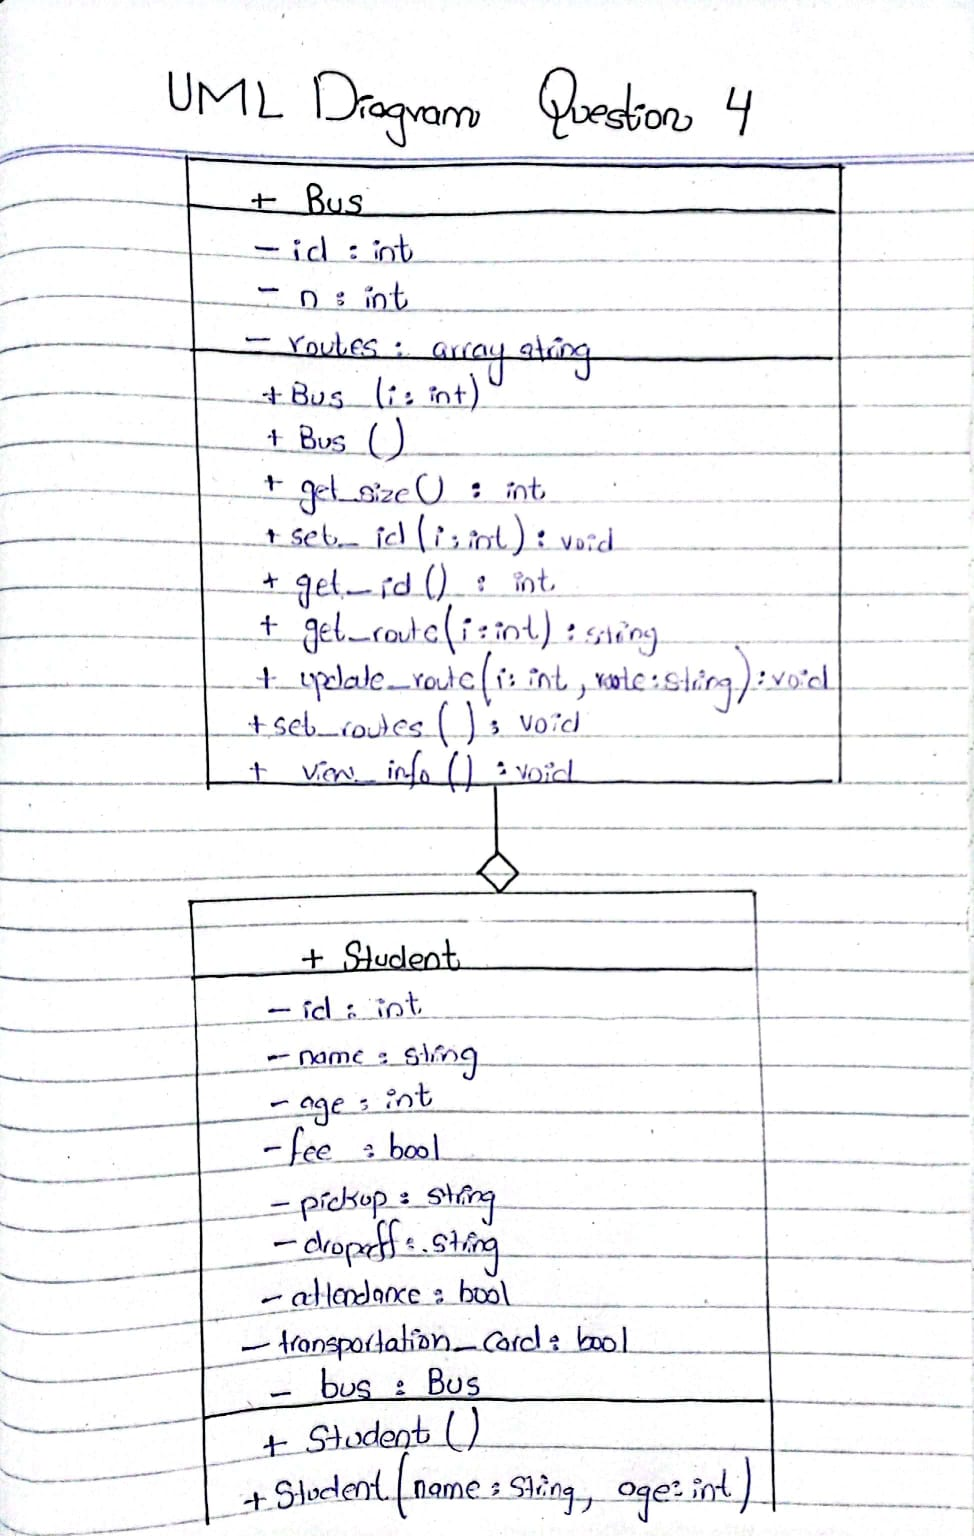 UML Diagram Question 4
+ Bus
- id : int
- n : int
- routes : array string
+ Bus (i : int)
+ Bus ()
+ get_size() : int
+ set_id (i : int) : void
+ get_id () : int
+ get_route(i : int) : string
+ update_route(i : int, route : string) : void
+ set_routes () : void
+ view_info () : void
+ Student
- id : int
- name : string
- age : int
- fee : bool
- pickup : string
- dropoff : string
- attendance : bool
- transportation_card : bool
- bus : Bus
+ Student ()
+ Student (name : string, age : int)